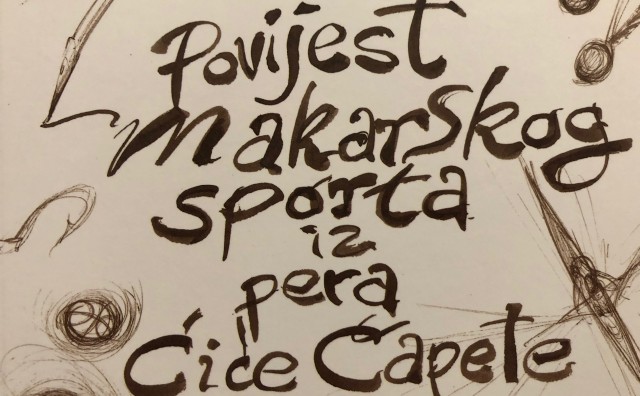 Povijest
makarskog
sporta
iz
pera
Ćiće Ćapete